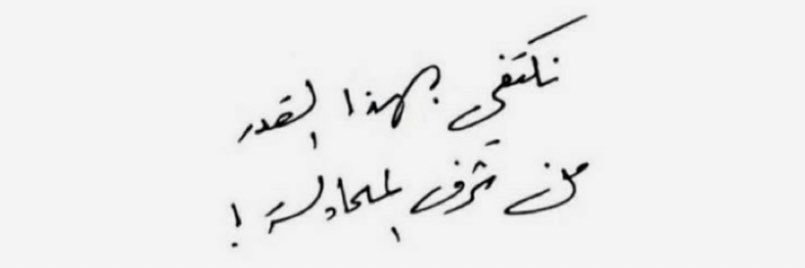 نكتفي بهذا القدر
من شرف المحاولة !